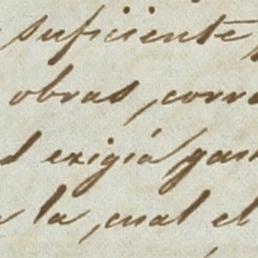 suficiente
obras, corr
d exigía gast
la, cual el